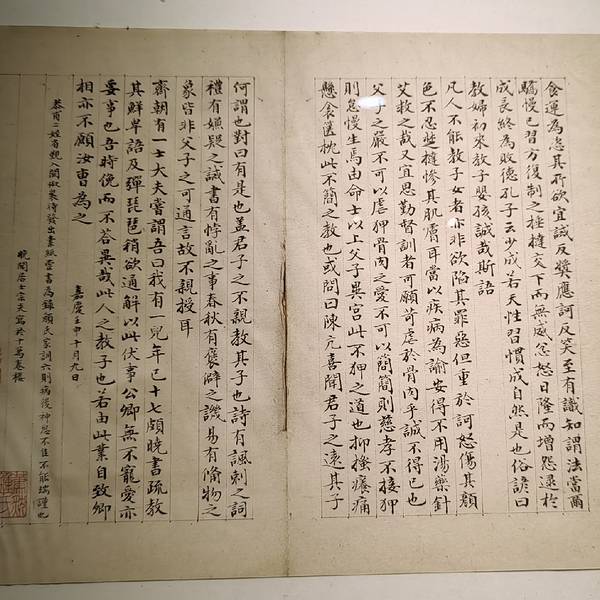 食運為恣其所欲宜誡反奬應訶反笑至有識知謂法當爾
驕慢已習方復制之捶撻交下而無威忿怒日隆而增怨逮於
成長終為敗德孔子云少成若天性習慣成自然是也俗諺曰
教婦初來教子嬰孩誠哉斯語
凡人不能教子女者亦非欲陷其罪惡但重於訶怒傷其顏
色不忍楚撻慘其肌膚耳當以疾病為諭安得不用湯藥針
艾救之哉又宜思勤督訓者可願苛虐於骨肉乎誠不得已也
父子之嚴不可以虐狎骨肉之愛不可以簡簡則慈孝不接狎
則怠慢生焉由命士以上父異宮此不狎之道也抑搔癢痛
懸衾篋枕此不簡之教也或問曰陳亢喜聞君子之遠其子
何謂也對曰有是也蓋君子之不親教其子也詩有諷刺之詞
禮有嫌疑之誡書有悖亂之事春秋有衺僻之譏易有備物之
象皆非父子之可通言故不親授耳
齊朝有一士大夫嘗謂吾曰我有一兒年已十七頗曉書疏教
其鮮卑語及彈琵琶稍欲通解以此伏事公卿無不寵愛亦
要事也吾時俛而不答異哉此人之教子也若由此業自致卿
相亦不願汝曹為之
嘉慶壬申十月九日
二姪入閩待發出素紙書為錄顏氏家訓六則病後神怠不佳不能端謹也
居士宗夫寫於十萬卷樓